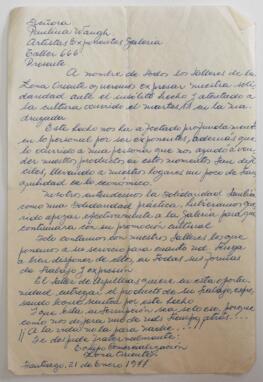 Señora
Paulina Waugh
Artistas Expositores Galería
Taller 666
Presente
A nombre de todos los talleres de la
Zona Oriente, queremos expresar nuestra soli-
daridad ante el insólito hecho y atentado a
la cultura ocurrido el martes 13 en la ma-
drugada.
Este hecho nos ha afectado profundamente
en lo personal por ser expositores, además que
lo ocurrido a una persona que nos ayudó a ven-
der nuestros productos en estos momentos tan difí-
ciles, llevando a nuestros hogares un poco de tran-
quilidad en lo económico.
Nosotros entendemos la solidaridad también
como una solidaridad práctica, hubiéramos que-
rido apoyar efectivamente a la Galería para que
continuara con su promoción cultural.
Sólo contamos con nuestros talleres, los que
ponemos a su servicio para cuando Ud. tenga
a bien disponer de ellos, en todas sus formas
de trabajo y expresión
El taller de Arpilleras quiere en esta oportu-
nidad entregar el producto de su trabajo, expre-
sando como sienten por este hecho
Y que esta interrupción sea sólo eso, porque
como nos dijera una de nuestras
¡¡A la vida no la para nadie...!!
Se despide fraternalmente:
Equipo Comercialización
Zona Oriente
Santiago, 21 de Enero 1977